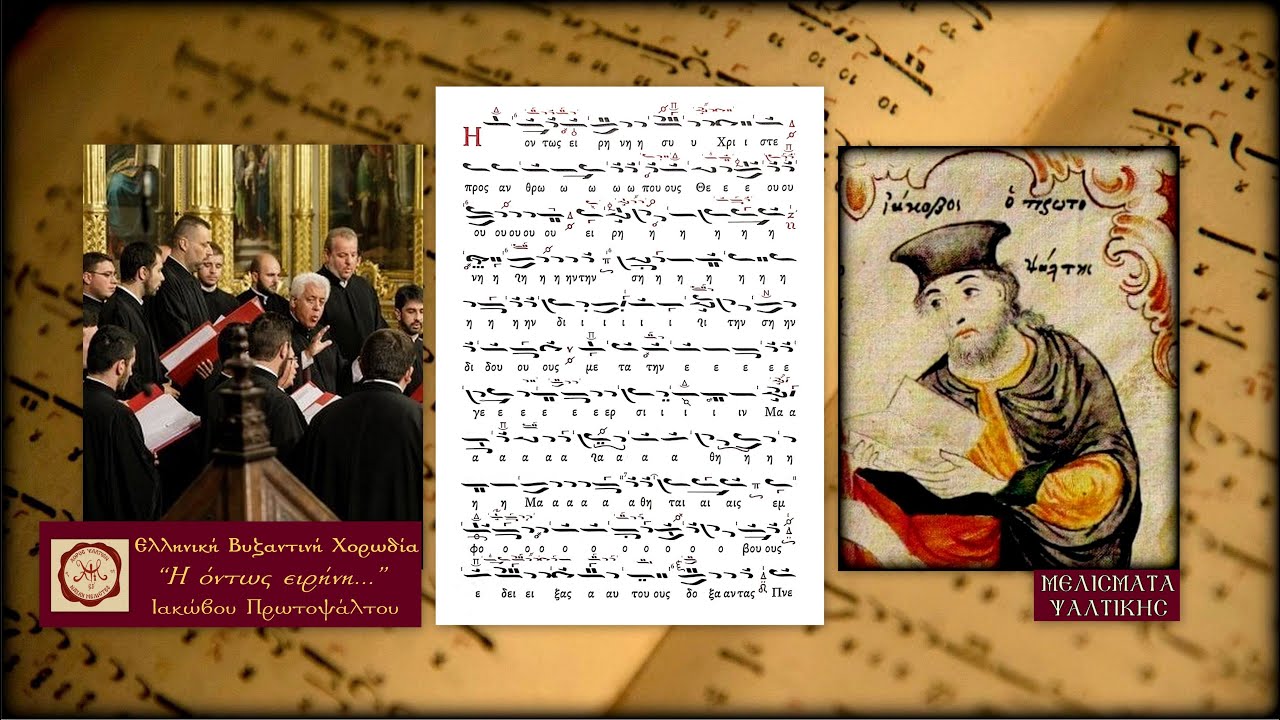 Ελληνική Βυζαντινή Χορωδία
“Η όντως ειρήνη...”
Ιακώβου Πρωτοψάλτου
Η ον τως ει ρη νη η συ υ Χρι ι στε
προς αν θρω ω ω ω ω που ους Θε ε ε ου ου
ου ου ου ου ου ει ρη η η η η η
νη η η η ην την ση η η η η η η
η η ην δι ι ι ι ι την ση ην
δι δου ου ους με τα την ε ε ε ε ε
γε ε ε ε ε ερ σι ι ι ιν Μα α
α α α α α α α α θη η η η
η η Μα α α α α α θη ται αι αις εμ
φο ο ο ο ο ο ο ο ο βου ους
ε δει ει ξας α αυ του ους δο ξα αν τας Πνε
ἰάκοβοι ὁ πρωτο
ψάλτης
ΜΕΛΙΣΜΑΤΑ
ΨΑΛΤΙΚΗΣ